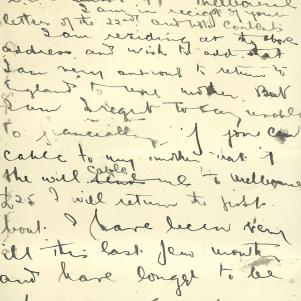 Melbourne
I am in receipt of your
letter of the 22nd and note contents
I am residing at the above
address and wish to add that
I am very anxious to return to
England to my mother. But
I regret to say unable
to financially, if you can
cable to my mother ask if
she will cable send me to Melbourne
£25 I will return the first
boat. I have been very
ill this last few months
and have longed to be